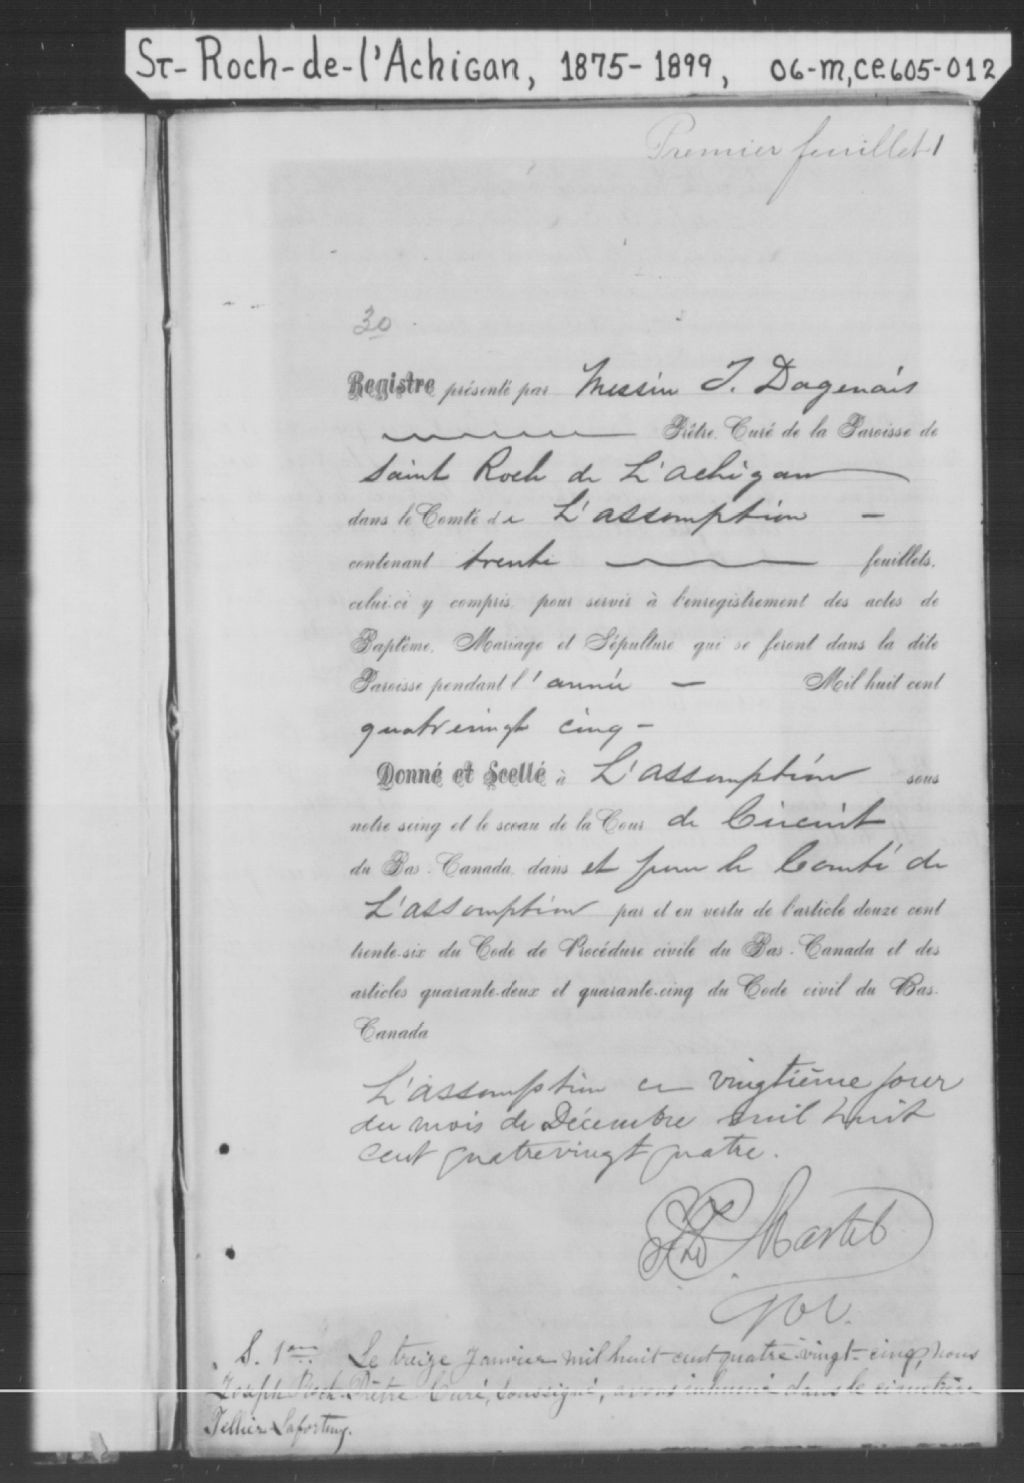 St-Roch-de-l'Achigan, 1875-1899, 06-M,CE605-012
Premier feuillet 1
30
Registre présenté par Messire J. Dagenais
Prêtre, Curé de la Paroisse de
Saint Roch de L'achigan
dans le Comté de L'assomption -
contenant trente feuillets,
celui-ci y compris, pour servir à l'enregistrement des actes de
Baptême, Mariage et Sépulture qui se feront dans la dite
Paroisse pendant l'année - Mil huit cent
quatrevingt cinq -
Donné et Scellé à L'assomption sous
notre seing et le sceau de la Cour de Circuit
du Bas-Canada, dans et pour le Comté de
L'assomption par et en vertu de l'article douze cent
trente-six du Code de Procédure civile du Bas-Canada et des
articles quarante-deux et quarante-cinq du Code civil du Bas-
Canada
L'assomption ce vingtième jour
du mois de Décembre mil huit
cent quatrevingt quatre.
Martel
S. 1ère Le treize Janvier mil huit cent quatre-vingt-cinq, nous
Joseph Roch Prêtre Curé, soussigné, avons inhumé dans le cimetière
Tellier Lafortune.